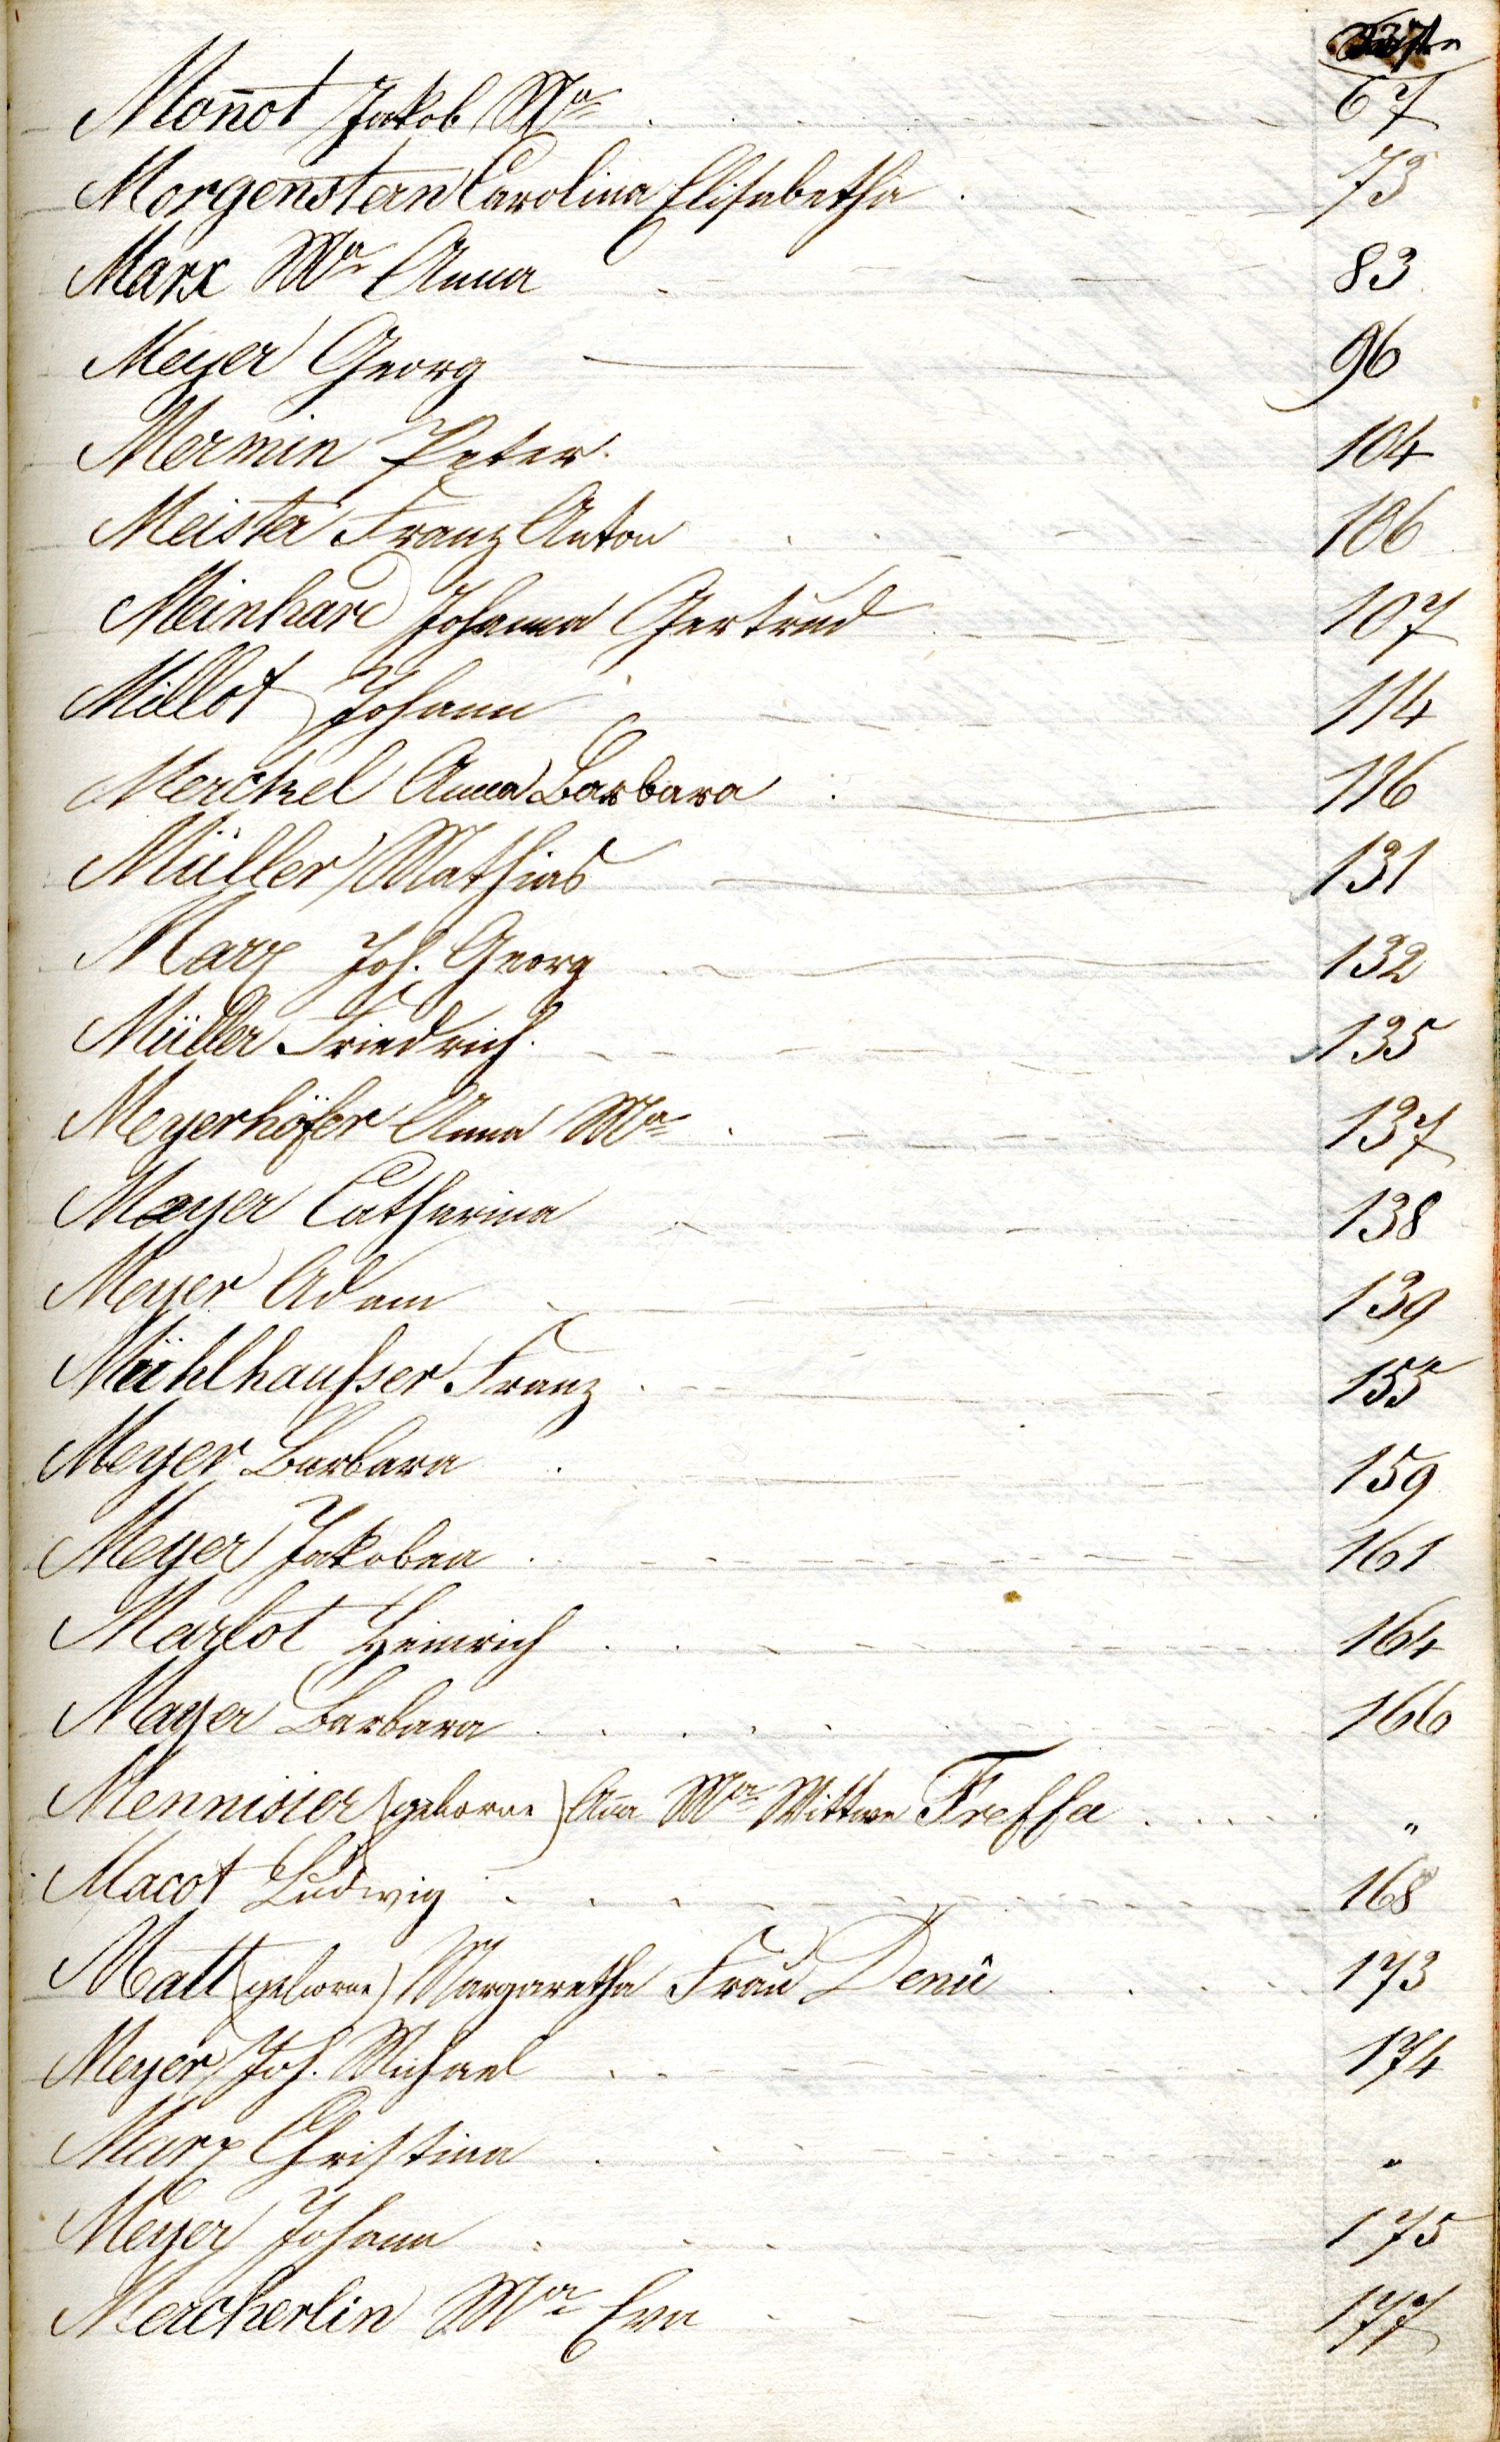 Mon̄ot Jakob Ma 67
Morgenstern Carolina Elisabetha 73
Marx Ma Anna 83
Meyer Georg 96
Mermin Peter. 104
Meister Franz Anton 106
Meinhard Johanna Gertrud 107
Millot Johann 114
Merckel Anna Barbara 116
Müller Mathias 131
Marx Joh. Georg 132
Müller Friedrich. 135
Meyerhöfer Anna Ma 137
Mayer Catharina 138
Meyer Adam 139
Mühlhausser Franz 155
Meyer Barbara 159
Meyer Jakobea 161
Marlot Heinrich 164
Mayer Barbara 166
Mennisier (geborne) An̄a Ma Wittwe Freffa "
Macot Ludwig 168
Matt (geborne) Margaretha Frau Denü 173
Meyer Joh. Michael 174
Marx Christina "
Meyer Johann 175
Mercherlin Ma Eva 177